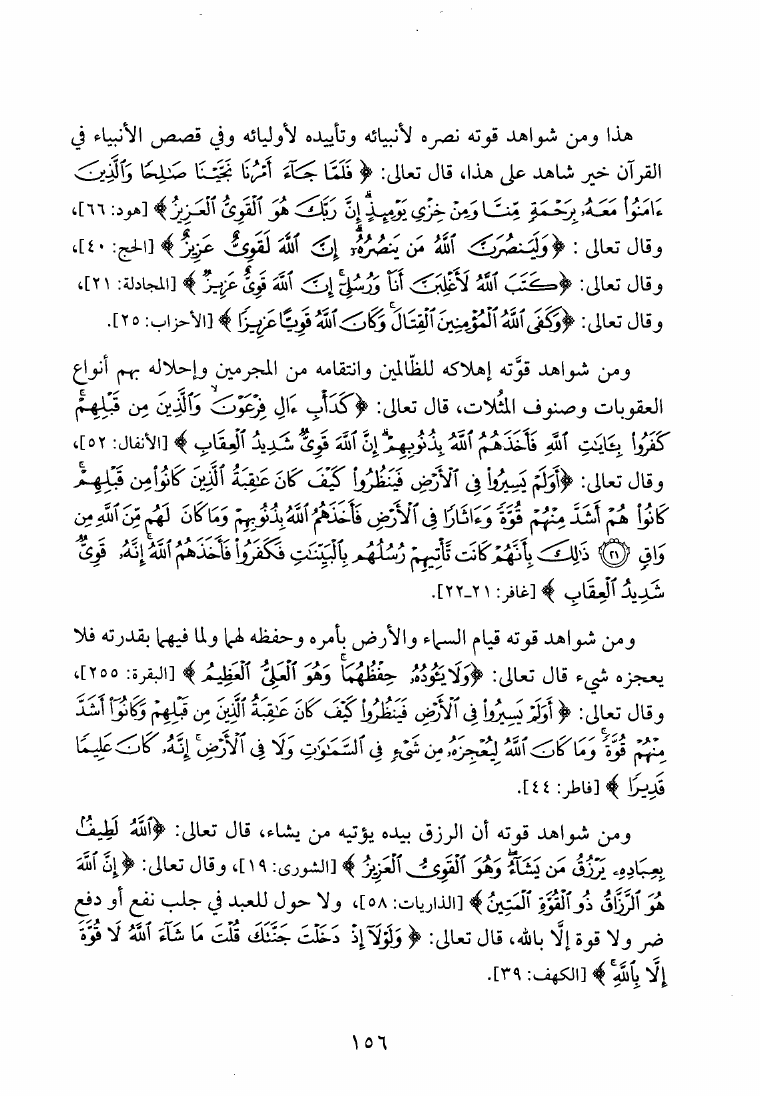 هذا ومن شواهد قوته نصره لأنبيائه وتأييده لأوليائه وفي قصص الأنبياء في
القرآن خير شاهد على هذا، قال تعالى: ﴿ فَلَمَّا جَآءَ أَمْرُنَا نَجَّيْنَا صَٰلِحًا وَٱلَّذِينَ
ءَامَنُوا۟ مَعَهُۥ بِرَحْمَةٍ مِّنَّا وَمِنْ خِزْىِ يَوْمِئِذٍ ۗ إِنَّ رَبَّكَ هُوَ ٱلْقَوِىُّ ٱلْعَزِيزُ ﴾ [هود: ٦٦]،
وقال تعالى : ﴿ وَلَيَنصُرَنَّ ٱللَّهُ مَن يَنصُرُهُۥٓ ۗ إِنَّ ٱللَّهَ لَقَوِىٌّ عَزِيزٌ ﴾ [الحج: ٤٠]،
وقال تعالى: ﴿كَتَبَ ٱللَّهُ لَأَغْلِبَنَّ أَنَا۠ وَرُسُلِىٓ ۚ إِنَّ ٱللَّهَ قَوِىٌّ عَزِيزٌ ﴾ [المجادلة: ٢١]،
وقال تعالى: ﴿وَكَفَى ٱللَّهُ ٱلْمُؤْمِنِينَ ٱلْقِتَالَ ۚ وَكَانَ ٱللَّهُ قَوِيًّا عَزِيزًا ﴾ [الأحزاب: ٢٥].
ومن شواهد قوَّته إهلاكه للظّالمين وانتقامه من المجرمين وإحلاله بهم أنواع
العقوبات وصنوف المثُلات، قال تعالى: ﴿كَدَأْبِ ءَالِ فِرْعَوْنَ ۙ وَٱلَّذِينَ مِن قَبْلِهِمْ ۚ
كَفَرُوا۟ بِـَٔايَٰتِ ٱللَّهِ فَأَخَذَهُمُ ٱللَّهُ بِذُنُوبِهِمْ ۗ إِنَّ ٱللَّهَ قَوِىٌّ شَدِيدُ ٱلْعِقَابِ ﴾ [الأنفال: ٥٢]،
وقال تعالى: ﴿أَوَلَمْ يَسِيرُوا۟ فِى ٱلْأَرْضِ فَيَنظُرُوا۟ كَيْفَ كَانَ عَٰقِبَةُ ٱلَّذِينَ كَانُوا۟ مِن قَبْلِهِمْ ۚ
كَانُوا۟ هُمْ أَشَدَّ مِنْهُمْ قُوَّةً وَءَاثَارًا فِى ٱلْأَرْضِ فَأَخَذَهُمُ ٱللَّهُ بِذُنُوبِهِمْ وَمَا كَانَ لَهُم مِّنَ ٱللَّهِ مِن
وَاقٍ ﴿٢١﴾ ذَٰلِكَ بِأَنَّهُمْ كَانَت تَّأْتِيهِمْ رُسُلُهُم بِٱلْبَيِّنَٰتِ فَكَفَرُوا۟ فَأَخَذَهُمُ ٱللَّهُ ۚ إِنَّهُۥ قَوِىٌّ
شَدِيدُ ٱلْعِقَابِ ﴾ [غافر: ٢١-٢٢].
ومن شواهد قوته قيام السماء والأرض بأمره وحفظه لهما ولما فيهما بقدرته فلا
يعجزه شيء قال تعالى: ﴿وَلَا يَـُٔودُهُۥ حِفْظُهُمَا ۚ وَهُوَ ٱلْعَلِىُّ ٱلْعَظِيمُ ﴾ [البقرة: ٢٥٥]،
وقال تعالى: ﴿ أَوَلَمْ يَسِيرُوا۟ فِى ٱلْأَرْضِ فَيَنظُرُوا۟ كَيْفَ كَانَ عَٰقِبَةُ ٱلَّذِينَ مِن قَبْلِهِمْ وَكَانُوٓا۟ أَشَدَّ
مِنْهُمْ قُوَّةً ۚ وَمَا كَانَ ٱللَّهُ لِيُعْجِزَهُۥ مِن شَىْءٍ فِى ٱلسَّمَٰوَٰتِ وَلَا فِى ٱلْأَرْضِ ۚ إِنَّهُۥ كَانَ عَلِيمًا
قَدِيرًا ﴾ [فاطر: ٤٤].
ومن شواهد قوته أن الرزق بيده يؤتيه من يشاء، قال تعالى: ﴿ٱللَّهُ لَطِيفٌۢ
بِعِبَادِهِۦ يَرْزُقُ مَن يَشَآءُ ۖ وَهُوَ ٱلْقَوِىُّ ٱلْعَزِيزُ ﴾ [الشورى: ١٩]، وقال تعالى: ﴿ إِنَّ ٱللَّهَ
هُوَ ٱلرَّزَّاقُ ذُو ٱلْقُوَّةِ ٱلْمَتِينُ ﴾ [الذاريات: ٥٨]، ولا حول للعبد في جلب نفع أو دفع
ضر ولا قوة إلَّا بالله، قال تعالى: ﴿ وَلَوْلَآ إِذْ دَخَلْتَ جَنَّتَكَ قُلْتَ مَا شَآءَ ٱللَّهُ لَا قُوَّةَ
إِلَّا بِٱللَّهِ ۚ ﴾ [الكهف: ٣٩].
١٥٦